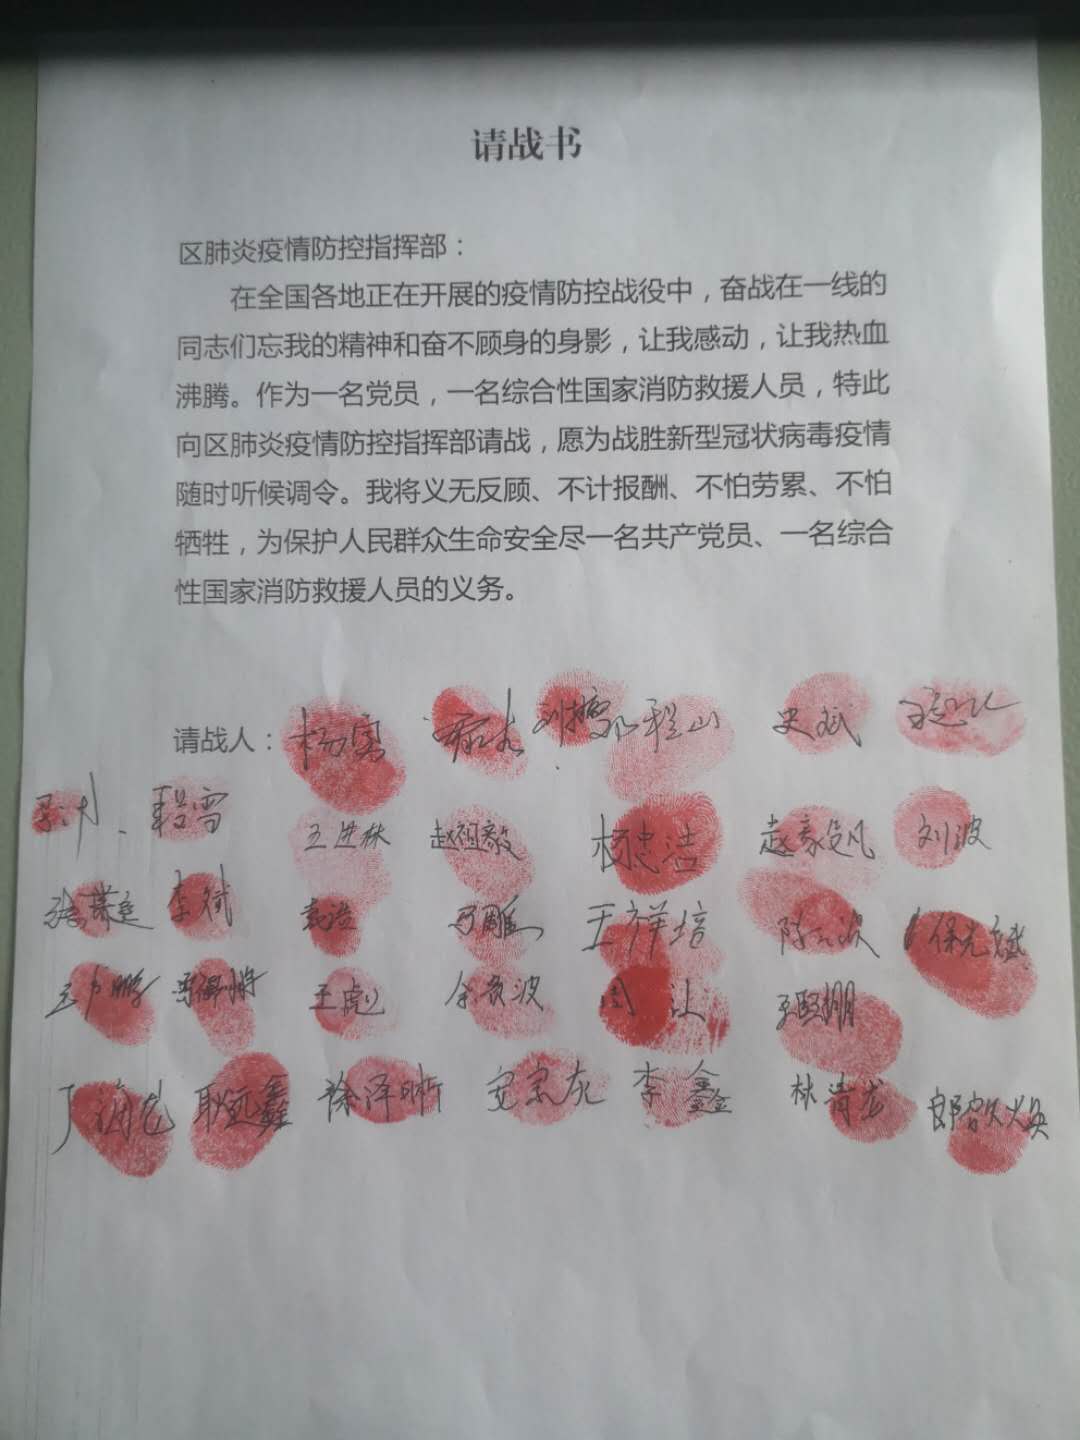 请战书
区肺炎疫情防控指挥部：
在全国各地正在开展的疫情防控战役中，奋战在一线的
同志们忘我的精神和奋不顾身的身影，让我感动，让我热血
沸腾。作为一名党员，一名综合性国家消防救援人员，特此
向区肺炎疫情防控指挥部请战，愿为战胜新型冠状病毒疫情
随时听候调令。我将义无反顾、不计报酬、不怕劳累、不怕
牺牲，为保护人民群众生命安全尽一名共产党员、一名综合
性国家消防救援人员的义务。
请战人： 史斌
王进林 赵祖毅 杨忠浩 赵家旋凡 刘波
李斌 袁浩 马雕 王祥培
王彪 余波 周让
耿远鑫 徐泽昕 李鑫 林清龙